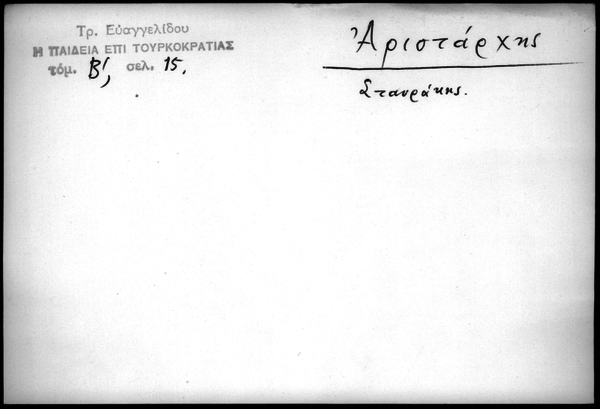 Τρ. Εὐαγγελίδου
Η ΠΑΙΔΕΙΑ ΕΠΙ ΤΟΥΡΚΟΚΡΑΤΙΑΣ
τόμ. Β', σελ. 15.
Ἀριστάρχης
Σταυράκης.